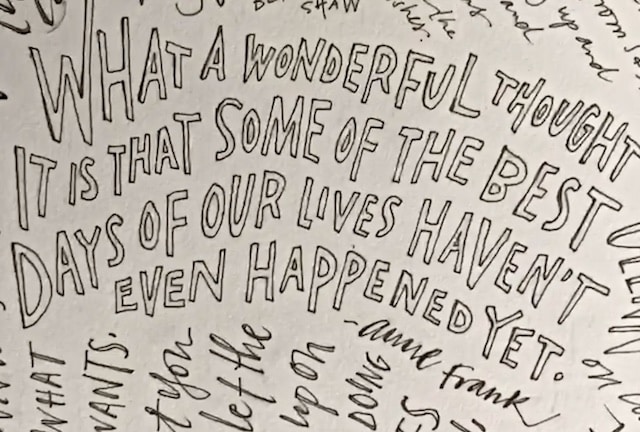 SHAW
the
and
up and
WHAT A WONDERFUL THOUGHT
IT IS THAT SOME OF THE BEST
DAYS OF OUR LIVES HAVEN'T
EVEN HAPPENED YET.
-Anne Frank
WHAT
WANTS.
you
let the
upon
DOING
on